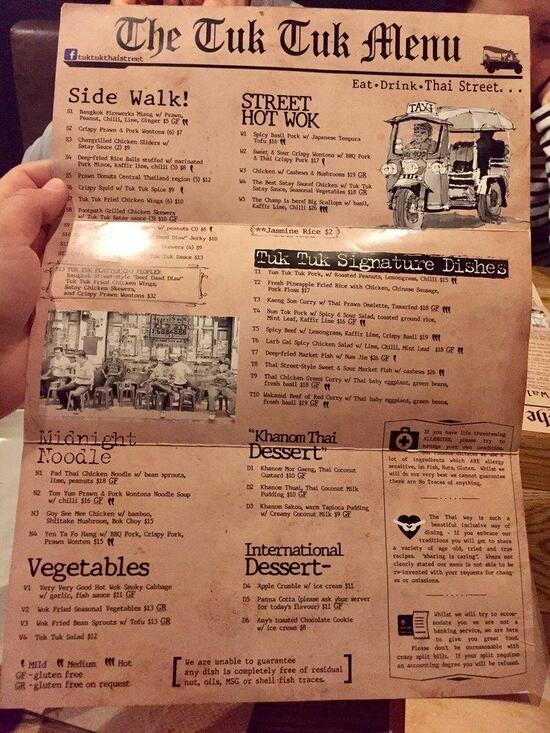 The Tuk Tuk Menu
f tuktukthaistreet
Eat·Drink·Thai Street...
Side Walk!
S1 Bangkok Fireworks Miang w/ Prawn,
Peanut, Chilli, Lime, Ginger $5 GF
S2 Crispy Prawn & Pork Wontons (6) $7
S3 Chargrilled Chicken Sliders w/
Satay Sauce (2) $9
S4 Deep-fried Rice Balls stuffed w/ marinated
Pork Mince, kaffir lime, chilli (3) $8
S5 Prawn Donuts Central Thailand region (3) $12
S6 Crispy Squid w/ Tuk Tuk Spice $9
S7 Tuk Tuk Fried Chicken Wings (6) $10
S8 Footpath Grilled Chicken Skewers
w/ Tuk Tuk Satay sauce (3) $10 GF
w/ peanuts (3) $8
Dead Diaw" Jerky $10
Skewers (4) $9
Tuk Sauce $13
Bangkok Street-style "Beef Dead Diaw"
Tuk Tuk Fried Chicken Wings,
Satay Chicken Skewers,
and Crispy Prawn Wontons $32
STREET
HOT WOK
W1 Spicy Basil Pork w/ Japanese Tempura
Tofu $16
W2 Sweet & Sour Crispy Wontons w/ BBQ Pork
& Thai Crispy Pork $17
W3 Chicken w/ Cashews & Mushrooms $19 GR
W4 The Best Satay Sauce! Chicken w/ Tuk Tuk
Satay Sauce, Seasonal Vegetables $18 GR
W5 The Champ is here! Big Scallops w/ basil,
Kaffir Lime, Chilli $26
TAXI
Jasmine Rice $2
Tuk Tuk Signature Dishes
T1 Yum Tuk Tuk Pork, w/ Roasted Peanuts, Lemongrass, Chilli $15
T2 Fresh Pineapple Fried Rice with Chicken, Chinese Sausage,
Pork Floss $17
T3 Kaeng Som Curry w/ Thai Prawn Omelette, Tamarind $18 GF
T4 Num Tok Pork w/ Spicy & Sour Salad, toasted ground rice,
Mint Leaf, Kaffir Lime $16 GF
T5 Spicy Beef w/ Lemongrass, Kaffir Lime, Crispy Basil $19
T6 Larb Gai Spicy Chicken Salad w/ Lime, Chilli, Mint Leaf $18 GF
T7 Deep-fried Market Fish w/ Nam Jim $26 GF
T8 Thai Street-Style Sweet & Sour Market Fish w/ cashews $26
T9 Thai Chicken Green Curry w/ Thai baby eggplant, green beans,
fresh basil $18 GF
T10 Wakanui Beef of Red Curry w/ Thai baby eggplant, green beans,
fresh basil $19 GF
Midnight
Noodle
N1 Pad Thai Chicken Noodle w/ bean sprouts,
lime, peanuts $18 GF
N2 Tom Yum Prawn & Pork Wontons Noodle Soup
w/ chilli $16 GF
N3 Goy See Mee Chicken w/ bamboo,
Shiitake Mushroom, Bok Choy $15
N4 Yen Ta Fo Hang w/ BBQ Pork, Crispy Pork,
Prawn Wonton $15
Vegetables
V1 Very Very Good Hot Wok Smoky Cabbage
w/ garlic, fish sauce $11 GF
V2 Wok Fried Seasonal Vegetables $13 GR
V3 Wok Fried Bean Sprouts w/ Tofu $13 GR
V4 Tuk Tuk Salad $12
Mild Medium Hot
GF -gluten free
GR -gluten free on request
"Khanom Thai
Dessert"
D1 Khanom Mor Gaeng, Thai Coconut
Custard $10 GF
D2 Khanom Thuai, Thai Coconut Milk
Pudding $10 GF
D3 Khanom Sakoo, warm Tapioca Pudding
w/ Creamy Coconut Milk $9 GF
International
Dessert-
D4 Apple Crumble w/ ice cream $11
D5 Panna Cotta (please ask your server
for today's flavour) $11 GF
D6 Amy's toasted Chocolate Cookie
w/ ice cream $8
We are unable to guarantee
any dish is completely free of residual
nut, oils, MSG or shell fish traces.
If you have life threatening
ALLERGIES, please try to
manage your own condition.
lot of ingredients which ARE allergy
sensitive, ie Fish, Nuts, Gluten. Whilst we
will do our very best we cannot guarantee
there are No Traces of anything.
The Thai way is such a
beautiful inclusive way of
dining - if you embrace our
traditions you will get to share
a variety of age old, tried and true
recipes. "sharing is caring". Where not
clearly stated our menu is not able to be
re-invented with your requests for chang-
es or omissions.
Whilst we will try to accom-
modate you we are not a
banking service, we are here
to give you great food.
Please don't be unreasonable with
crazy split bills. If your split requires
an accounting degree you will be refused.